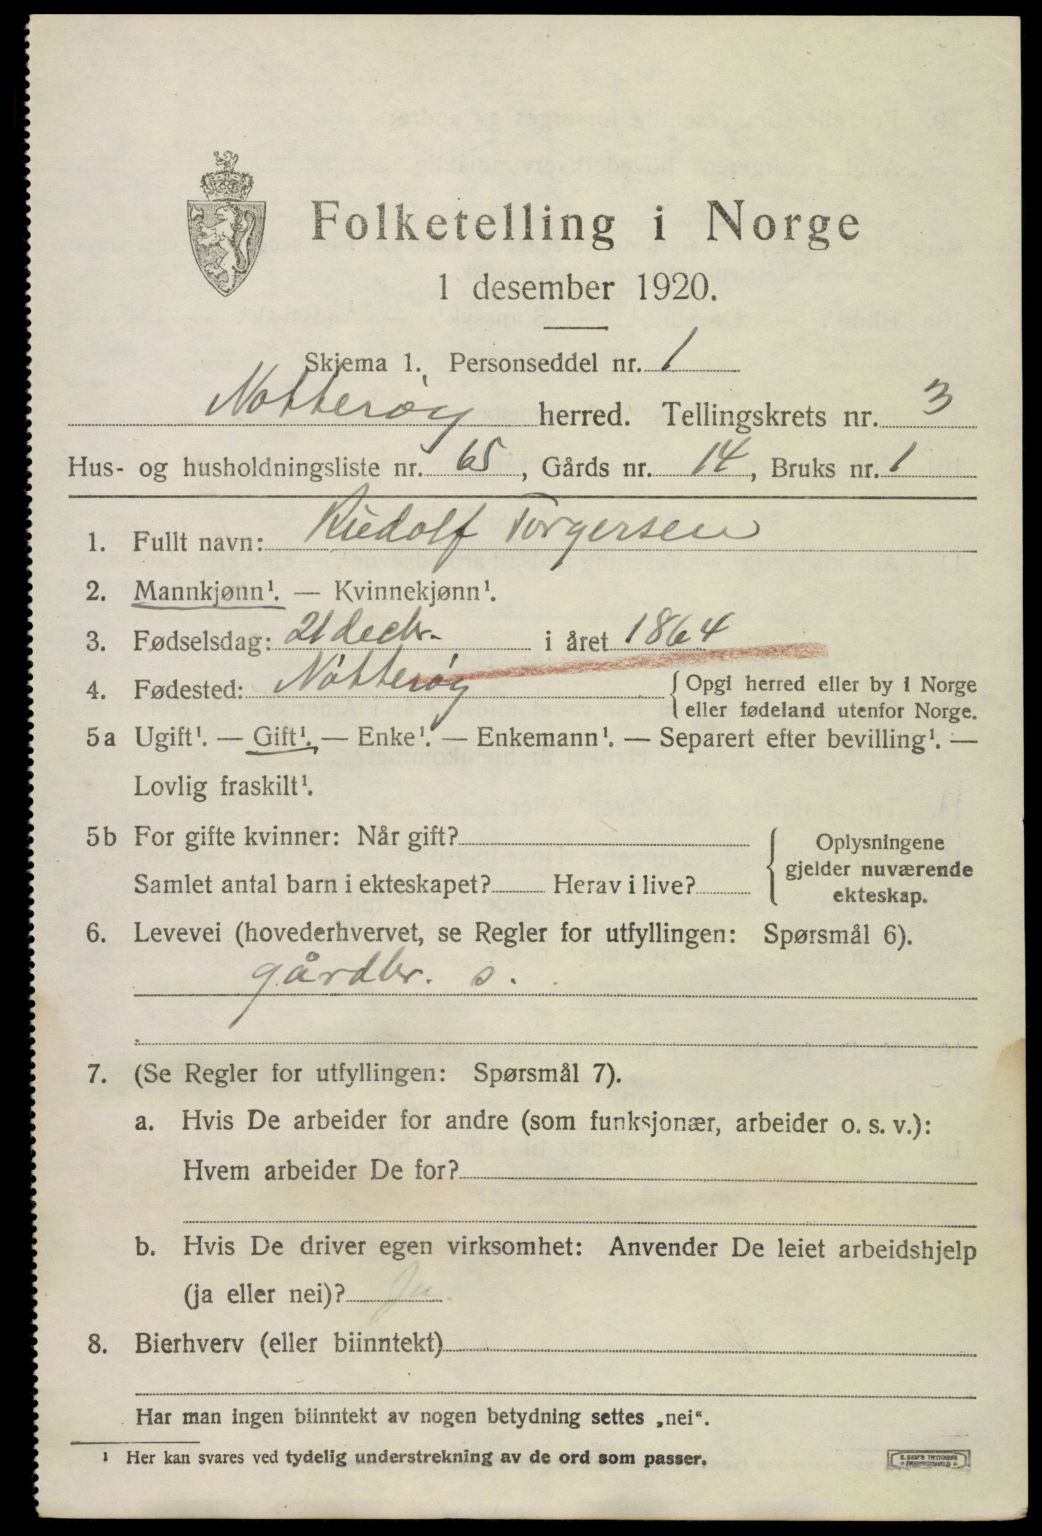 Folketelling i Norge
1 desember 1920.
Skjema 1. Personseddel nr. 1
Nøtterøy herred. Tellingskrets nr. 3
Hus- og husholdningsliste nr. 65, Gårds nr. 14, Bruks nr. 1
1. Fullt navn: Rudolf Torgersen
2. Mannkjønn¹. — Kvinnekjønn¹.
3. Fødselsdag: 21 decbr. i året 1864
4. Fødested: Nøtterøy { Opgi herred eller by i Norge
eller fødeland utenfor Norge.
5a Ugift¹. — Gift¹. — Enke¹. — Enkemann¹. — Separert efter bevilling¹. —
Lovlig fraskilt¹.
5b For gifte kvinner: Når gift?
Samlet antal barn i ekteskapet? Herav i live?
{ Oplysningene
gjelder nuværende
ekteskap.
6. Levevei (hovederhvervet, se Regler for utfyllingen: Spørsmål 6).
gårdbr. s.
7. (Se Regler for utfyllingen: Spørsmål 7).
a. Hvis De arbeider for andre (som funksjonær, arbeider o. s. v.):
Hvem arbeider De for?
b. Hvis De driver egen virksomhet: Anvender De leiet arbeidshjelp
(ja eller nei)? Ja
8. Bierhverv (eller biinntekt)
Har man ingen biinntekt av nogen betydning settes „nei“.
¹ Her kan svares ved tydelig understrekning av de ord som passer.